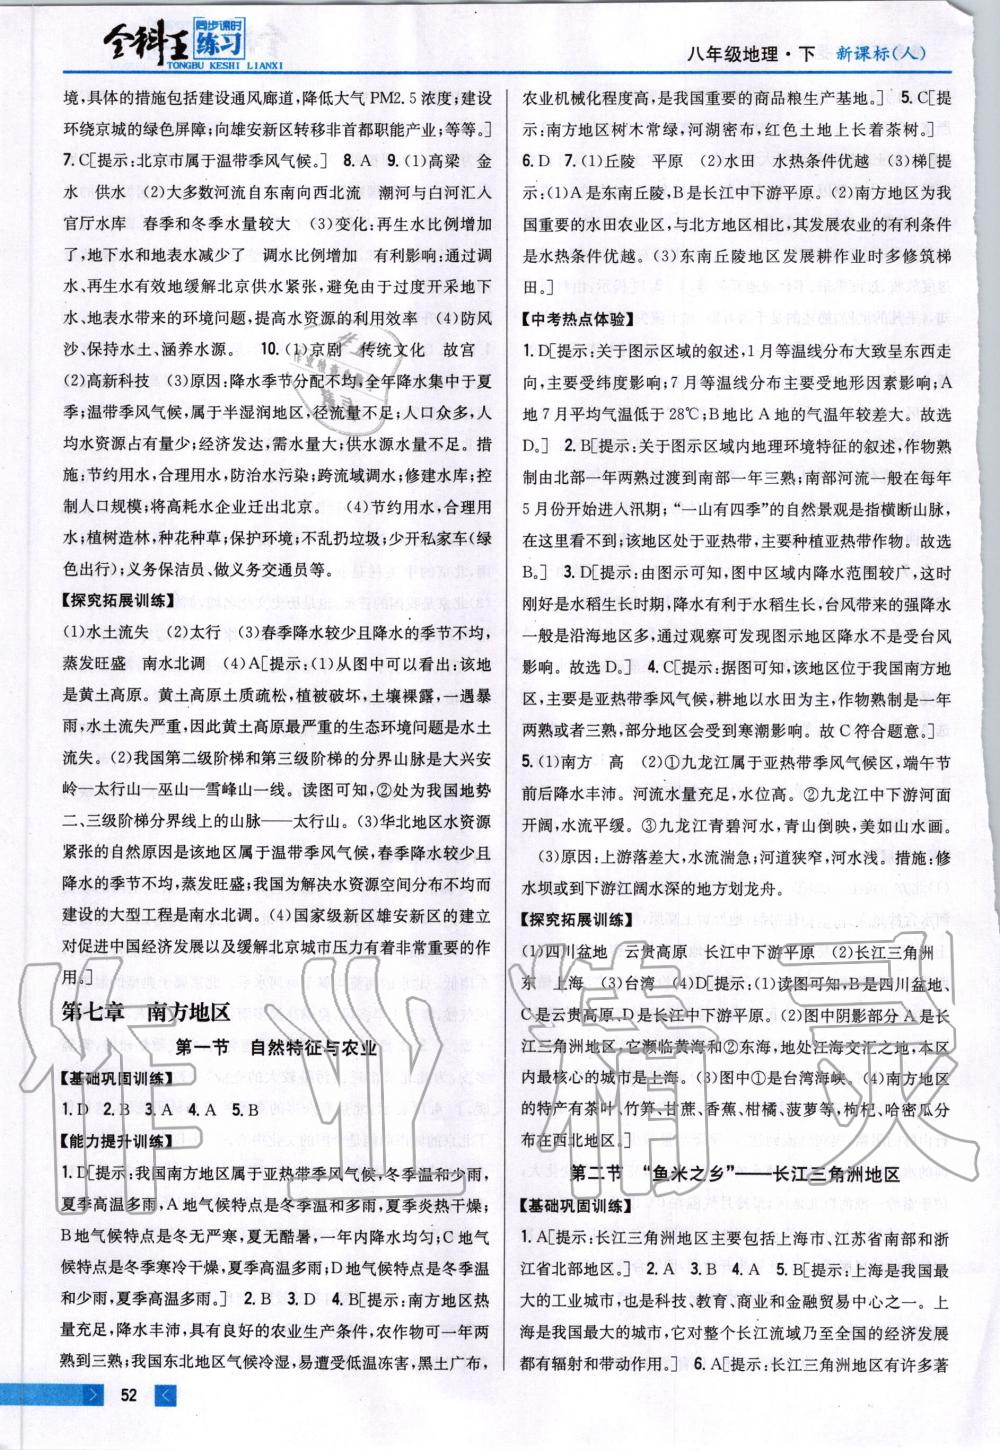 全科王
同步课时
练习
TONGBU KESHI LIANXI
八年级地理·下 新课标(人)
境,具体的措施包括建设通风廊道,降低大气PM2.5浓度;建设
环绕京城的绿色屏障;向雄安新区转移非首都职能产业;等等。]
7. C[提示:北京市属于温带季风气候。] 8. A 9. (1)高梁 金
水 供水 (2)大多数河流自东南向西北流 潮河与白河汇入
官厅水库 春季和冬季水量较大 (3)变化:再生水比例增加
了,地下水和地表水减少了 调水比例增加 有利影响:通过调
水、再生水有效地缓解北京供水紧张,避免由于过度开采地下
水、地表水带来的环境问题,提高水资源的利用效率 (4)防风
沙、保持水土、涵养水源。 10. (1)京剧 传统文化 故宫
(2)高新科技 (3)原因:降水季节分配不均,全年降水集中于夏
季;温带季风气候,属于半湿润地区,径流量不足;人口众多,人
均水资源占有量少;经济发达,需水量大;供水源水量不足。措
施:节约用水,合理用水,防治水污染;跨流域调水;修建水库;控
制人口规模;将高耗水企业迁出北京。 (4)节约用水,合理用
水;植树造林,种花种草;保护环境;不乱扔垃圾;少开私家车(绿
色出行);义务保洁员、做义务交通员等。
【探究拓展训练】
(1)水土流失 (2)太行 (3)春季降水较少且降水的季节不均,
蒸发旺盛 南水北调 (4)A[提示:(1)从图中可以看出:该地
是黄土高原。黄土高原土质疏松,植被破坏,土壤裸露,一遇暴
雨,水土流失严重,因此黄土高原最严重的生态环境问题是水土
流失。(2)我国第二级阶梯和第三级阶梯的分界山脉是大兴安
岭—太行山—巫山—雪峰山一线。读图可知,②处为我国地势
二、三级阶梯分界线上的山脉——太行山。(3)华北地区水资源
紧张的自然原因是该地区属于温带季风气候,春季降水较少且
降水的季节不均,蒸发旺盛;我国为解决水资源空间分布不均而
建设的大型工程是南水北调。(4)国家级新区雄安新区的建立
对促进中国经济发展以及缓解北京城市压力有着非常重要的作
用。]
第七章 南方地区
第一节 自然特征与农业
【基础巩固训练】
1. D 2. B 3. A 4. A 5. B
【能力提升训练】
1. D[提示:我国南方地区属于亚热带季风气候,冬季温和少雨,
夏季高温多雨,A地气候特点是冬季温和多雨,夏季炎热干燥;
B地气候特点是冬无严寒,夏无酷暑,一年内降水均匀;C地气
候特点是冬季寒冷干燥,夏季高温多雨;D地气候特点是冬季温
和少雨,夏季高温多雨。] 2. B 3. D 4. B[提示:南方地区热
量充足,降水丰沛,具有良好的农业生产条件,农作物可一年两
熟到三熟;我国东北地区气候冷湿,易遭受低温冻害,黑土广布,
农业机械化程度高,是我国重要的商品粮生产基地。] 5. C[提
示:南方地区树木常绿,河湖密布,红色土地上长着茶树。]
6. D 7. (1)丘陵 平原 (2)水田 水热条件优越 (3)梯[提
示:(1)A是东南丘陵,B是长江中下游平原。(2)南方地区为我
国重要的水田农业区,与北方地区相比,其发展农业的有利条件
是水热条件优越。(3)东南丘陵地区发展耕作业时多修筑梯
田。]
【中考热点体验】
1. D[提示:关于图示区域的叙述,1月等温线分布大致呈东西走
向,主要受纬度影响;7月等温线分布主要受地形因素影响;A
地7月平均气温低于28℃;B地比A地的气温年较差大。故选
D。] 2. B[提示:关于图示区域内地理环境特征的叙述,作物熟
制由北部一年两熟过渡到南部一年三熟;南部河流一般在每年
5月份开始进入汛期;“一山有四季”的自然景观是指横断山脉,
在这里看不到;该地区处于亚热带,主要种植亚热带作物。故选
B。] 3. D[提示:由图示可知,图中区域内降水范围较广,这时
刚好是水稻生长时期,降水有利于水稻生长,台风带来的强降水
一般是沿海地区多,通过观察可发现图示地区降水不是受台风
影响。故选D。] 4. C[提示:据图可知,该地区位于我国南方地
区,主要是亚热带季风气候,耕地以水田为主,作物熟制是一年
两熟或者三熟,部分地区会受到寒潮影响。故C符合题意。]
5. (1)南方 高 (2)①九龙江属于亚热带季风气候区,端午节
前后降水丰沛。河流水量充足,水位高。②九龙江中下游河面
开阔,水流平缓。③九龙江青碧河水,青山倒映,美如山水画。
(3)原因:上游落差大,水流湍急;河道狭窄,河水浅。措施:修
水坝或到下游江阔水深的地方划龙舟。
【探究拓展训练】
(1)四川盆地 云贵高原 长江中下游平原 (2)长江三角洲
东 上海 (3)台湾 (4)D[提示:(1)读图可知,B是四川盆地、
C是云贵高原、D是长江中下游平原。(2)图中阴影部分A是长
江三角洲地区。它濒临黄海和②东海,地处江海交汇之地,本区
内最核心的城市是上海。(3)图中①是台湾海峡。(4)南方地区
的特产有茶叶、竹笋、甘蔗、香蕉、柑橘、菠萝等,枸杞、哈密瓜分
布在西北地区。]
第二节 “鱼米之乡”——长江三角洲地区
【基础巩固训练】
1. A[提示:长江三角洲地区主要包括上海市、江苏省南部和浙
江省北部地区。] 2. A 3. B 4. A 5. B[提示:上海是我国最
大的工业城市,也是科技、教育、商业和金融贸易中心之一。上
海是我国最大的城市,它对整个长江流域乃至全国的经济发展
都有辐射和带动作用。] 6. A[提示:长江三角洲地区有许多著
52
作业精灵